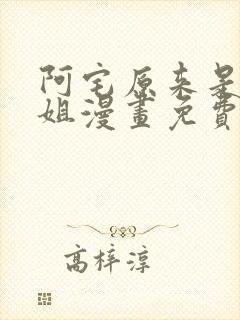 阿宅原来是
姐漫畫免費
高梓淳